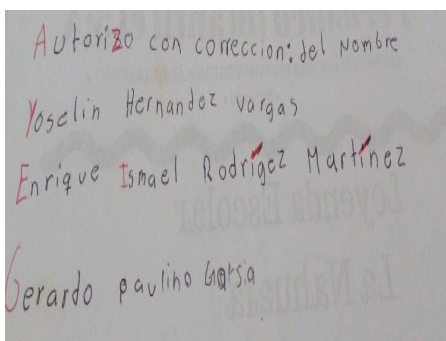 Autorizo con correccion: del Nombre
Yoselin Hernandez vargas
Enrique Ismael Rodrígez Martínez
Gerardo paulino Garsia
Leyenda Escolar
La Nahuala